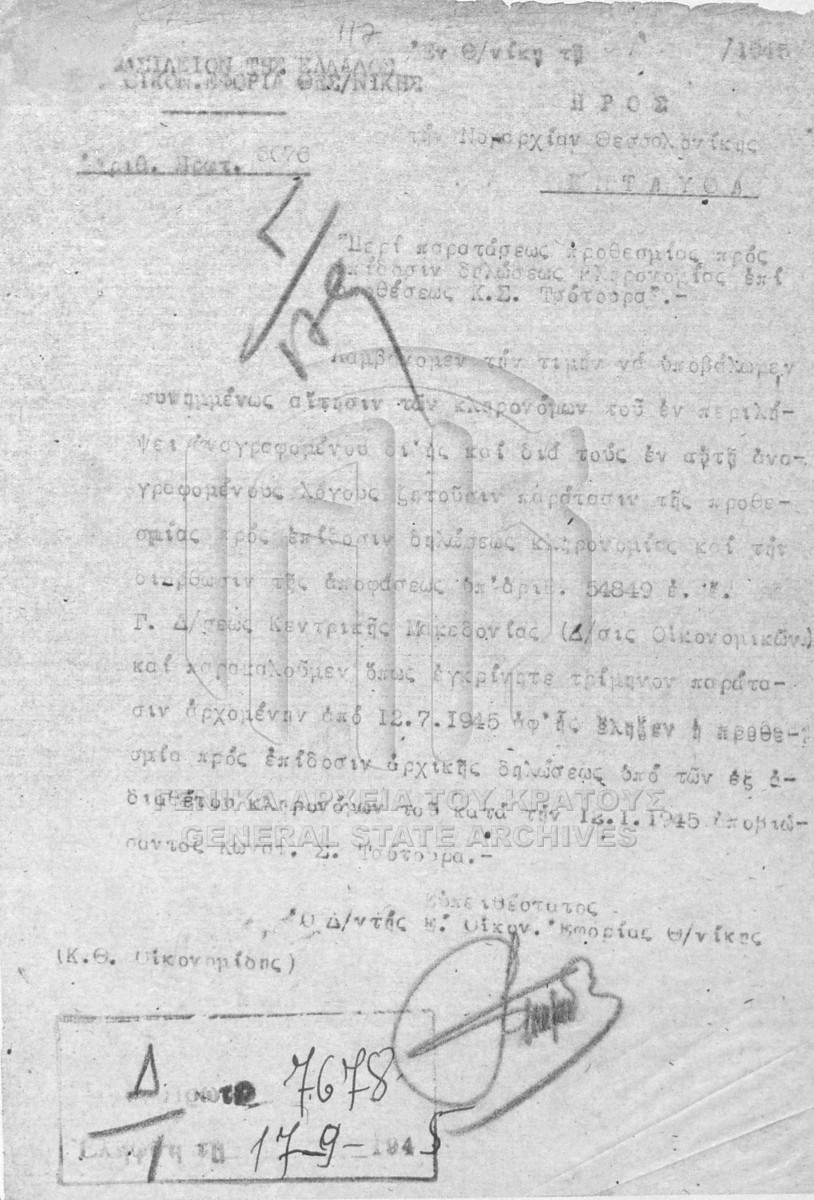 117
Ἐν Θ/νίκη τῇ /1945
ΒΑΣΙΛΕΙΟΝ ΤΗΣ ΕΛΛΑΔΟΣ
ΟΙΚΟΝ.ΕΦΟΡΙΑ ΘΕΣ/ΝΙΚΗΣ
ΠΡΟΣ
τήν Νομαρχίαν Θεσσαλονίκης
Ἀριθ. Πρωτ. 6076
ΕΝΤΑΥΘΑ
"Περί παρατάσεως προθεσμίας πρός
ἐπίδοσιν δηλώσεως κληρονομίας ἐπί
ὑποθέσεως Κ.Σ. Τσότουρα".-
Λαμβάνομεν τήν τιμήν νά ὑποβάλωμεν
συνημμένως αἴτησιν τῶν κληρονόμων τοῦ ἐν περιλή-
ψει ἀναγραφομένου δι'ἧς καί διά τούς ἐν αὐτῇ ἀνα-
γραφομένους λόγους ζητοῦσιν παράτασιν τῆς προθε-
σμίας πρός ἐπίδοσιν δηλώσεως κληρονομίας καί τήν
διόρθωσιν τῆς ἀποφάσεως ὑπ'ἀριθ. 54849 ἐ. ἔ.
Γ. Δ/σεως Κεντρικῆς Μακεδονίας (Δ/σις Οἰκονομικῶν)
καί παρακαλοῦμεν ὅπως ἐγκρίνητε τρίμηνον παράτα-
σιν ἀρχομένην ἀπό 12.7.1945 ἀφ'ἧς ἔληξεν ἡ προθε-
σμία πρός ἐπίδοσιν ἀρχικῆς δηλώσεως ὑπό τῶν ἐξ ἀ-
διαθέτου κληρονόμων τοῦ κατά τήν 12.1.1945 ἀποβιώ-
σαντος Κωνστ. Σ. Τσότουρα.-
ΓΕΝΙΚΑ ΑΡΧΕΙΑ ΤΟΥ ΚΡΑΤΟΥΣ
GENERAL STATE ARCHIVES
Εὐπειθέστατος
Ὁ Δ/ντής Οἰκον. Ἐφορίας Θ/νίκης
(Κ.Θ. Οἰκονομίδης)
Δ
7678
Ἐλήφθη τῇ 17-9-1945